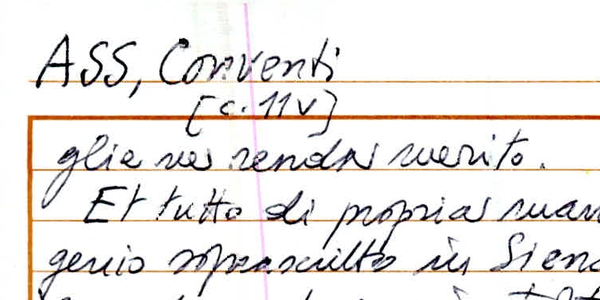 ASS, Conventi
[c. 11v]
glie ne renda merito.
Et tutto di propria man
genio soprascritto in Siena